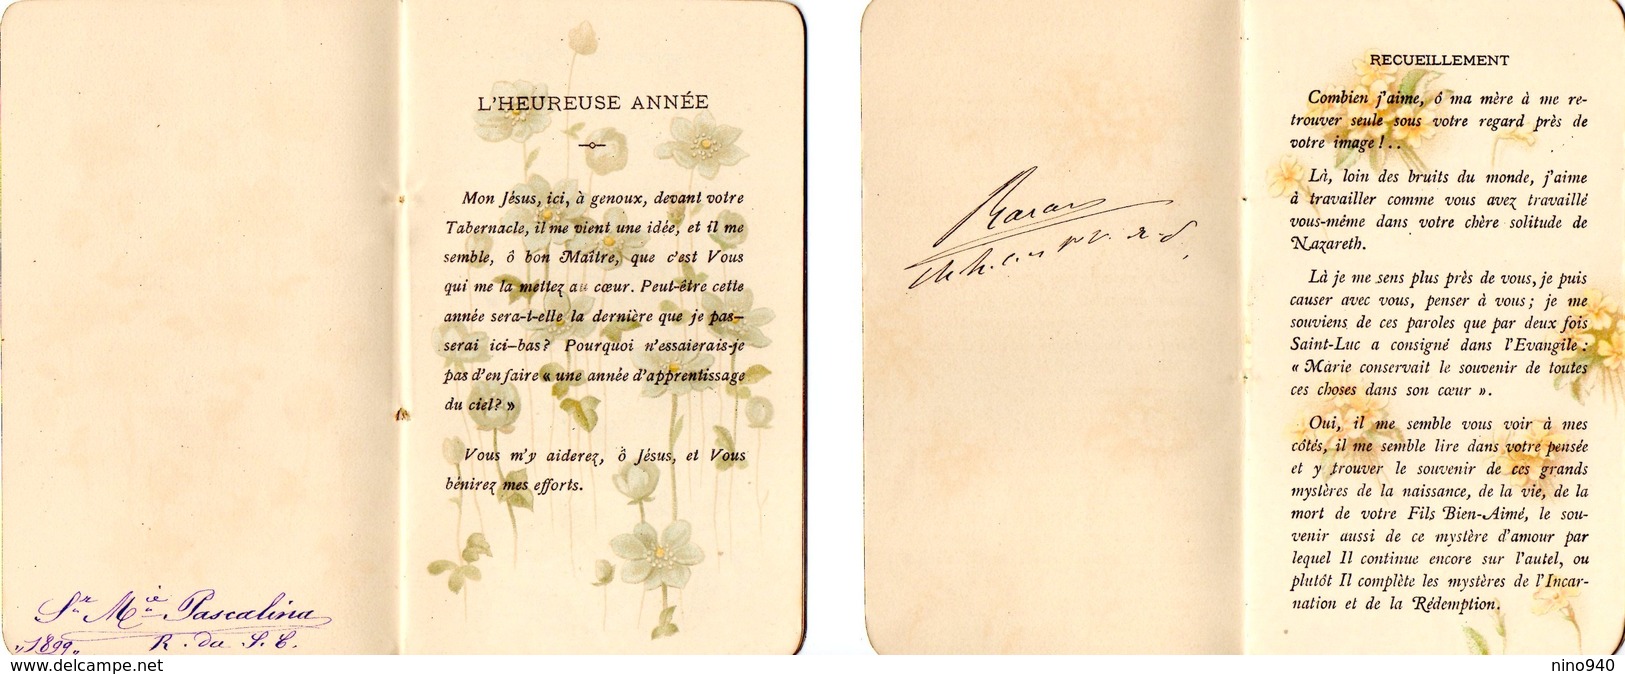 L'HEUREUSE ANNÉE
Mon Jésus, ici, à genoux, devant votre
Tabernacle, il me vient une idée, et il me
semble, ô bon Maître, que c'est Vous
qui me la mettez au cœur. Peut-être cette
année sera-t-elle la dernière que je pas-
serai ici-bas? Pourquoi n'essaierais-je
pas d'en faire « une année d'apprentissage
du ciel? »
Vous m'y aiderez, ô Jésus, et Vous
bénirez mes efforts.
Sr Mie Pascalina
"1899" R. du S. C.
RECUEILLEMENT
Combien j'aime, ô ma mère à me re-
trouver seule sous votre regard près de
votre image!..
Là, loin des bruits du monde, j'aime
à travailler comme vous avez travaillé
vous-même dans votre chère solitude de
Nazareth.
Là je me sens plus près de vous, je puis
causer avec vous, penser à vous; je me
souviens de ces paroles que par deux fois
Saint-Luc a consigné dans l'Evangile:
« Marie conservait le souvenir de toutes
ces choses dans son cœur ».
Oui, il me semble vous voir à mes
côtés, il me semble lire dans votre pensée
et y trouver le souvenir de ces grands
mystères de la naissance, de la vie, de la
mort de votre Fils Bien-Aimé, le sou-
venir aussi de ce mystère d'amour par
lequel Il continue encore sur l'autel, ou
plutôt Il complète les mystères de l'Incar-
nation et de la Rédemption.
www.delcampe.net
nino940